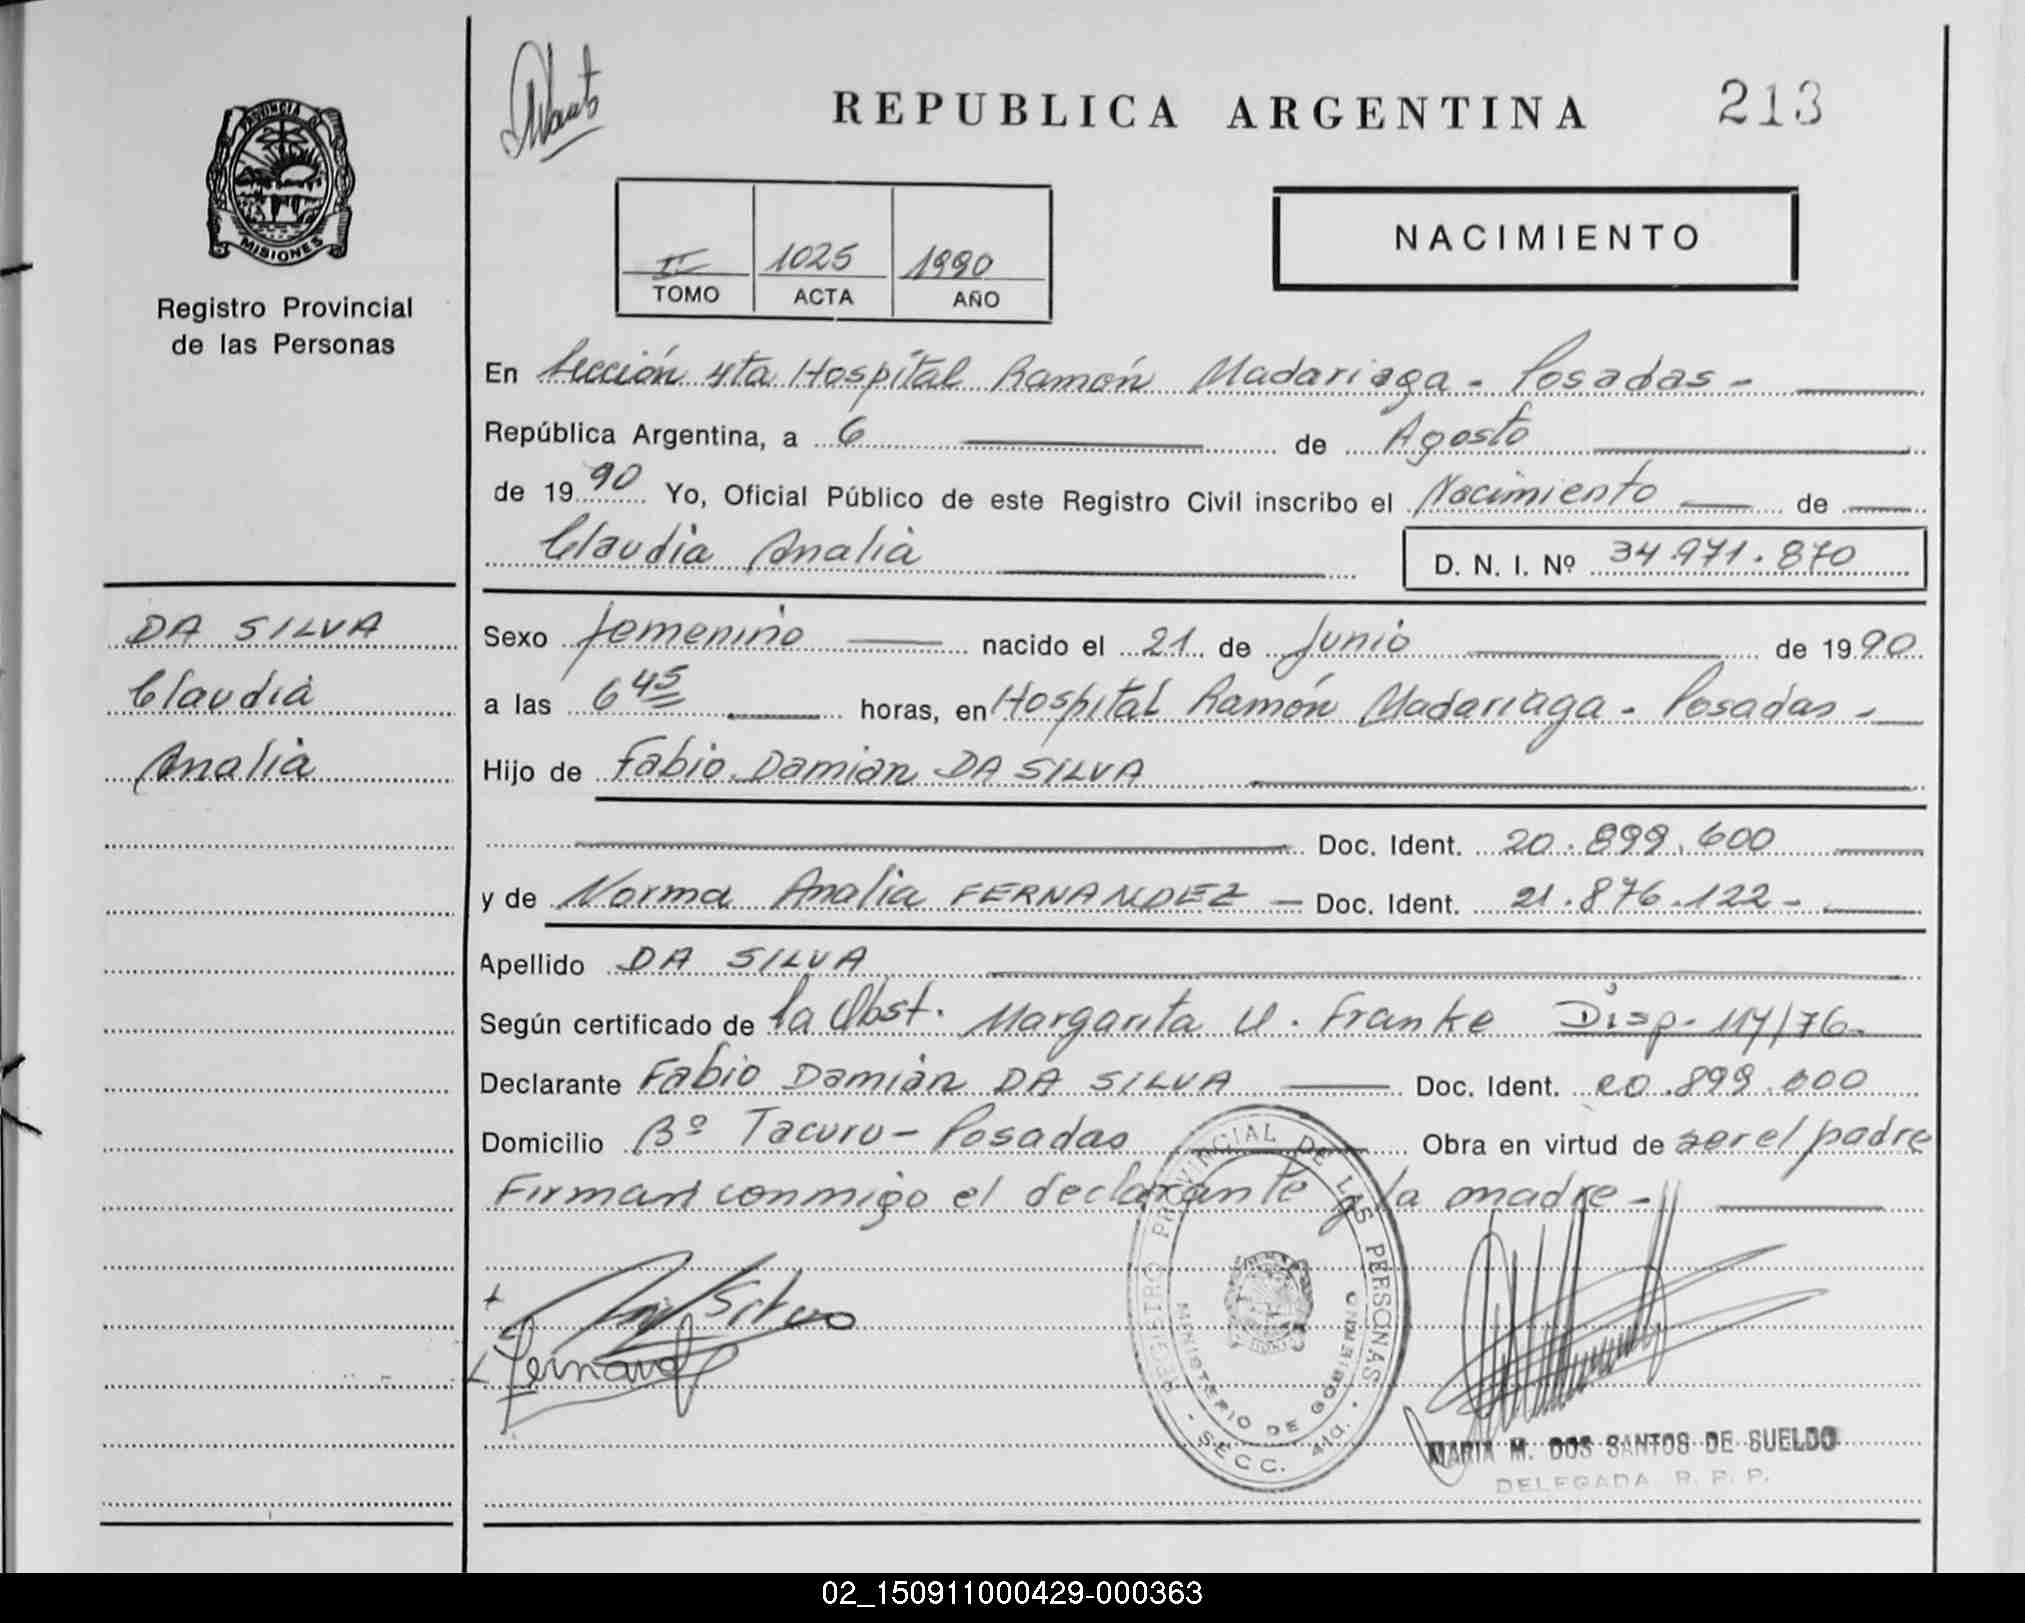 REPUBLICA ARGENTINA
213
PROVINCIA DE
MISIONES
Registro Provincial
de las Personas
II 1025 1990
TOMO ACTA AÑO
NACIMIENTO
En Sección 4ta Hospital Ramón Madariaga - Posadas -
República Argentina, a 6 de Agosto
de 1990 Yo, Oficial Público de este Registro Civil inscribo el Nacimiento de
Claudia Analia
D. N. I. Nº 34.971.870
DA SILVA
Claudia
Analia
Sexo femenino nacido el 21 de Junio de 1990
a las 6 45 horas, en Hospital Ramón Madariaga - Posadas -
Hijo de Fabio Damián DA SILVA
Doc. Ident. 20.899.600
y de Norma Analia FERNANDEZ - Doc. Ident. 21.876.122 -
Apellido DA SILVA
Según certificado de la Obst. Margarita U. Franke Disp. 114/76
Declarante Fabio Damián DA SILVA Doc. Ident. 20.899.600
Domicilio Bº Tacuru - Posadas Obra en virtud de ser el padre
Firman conmigo el declarante y la madre -
REGISTRO PROVINCIAL DE LAS PERSONAS
MINISTERIO DE GOBIERNO
- SECC. 4ta. -
MARIA M. DOS SANTOS DE SUELDO
DELEGADA R. P. P.
02_150911000429-000363